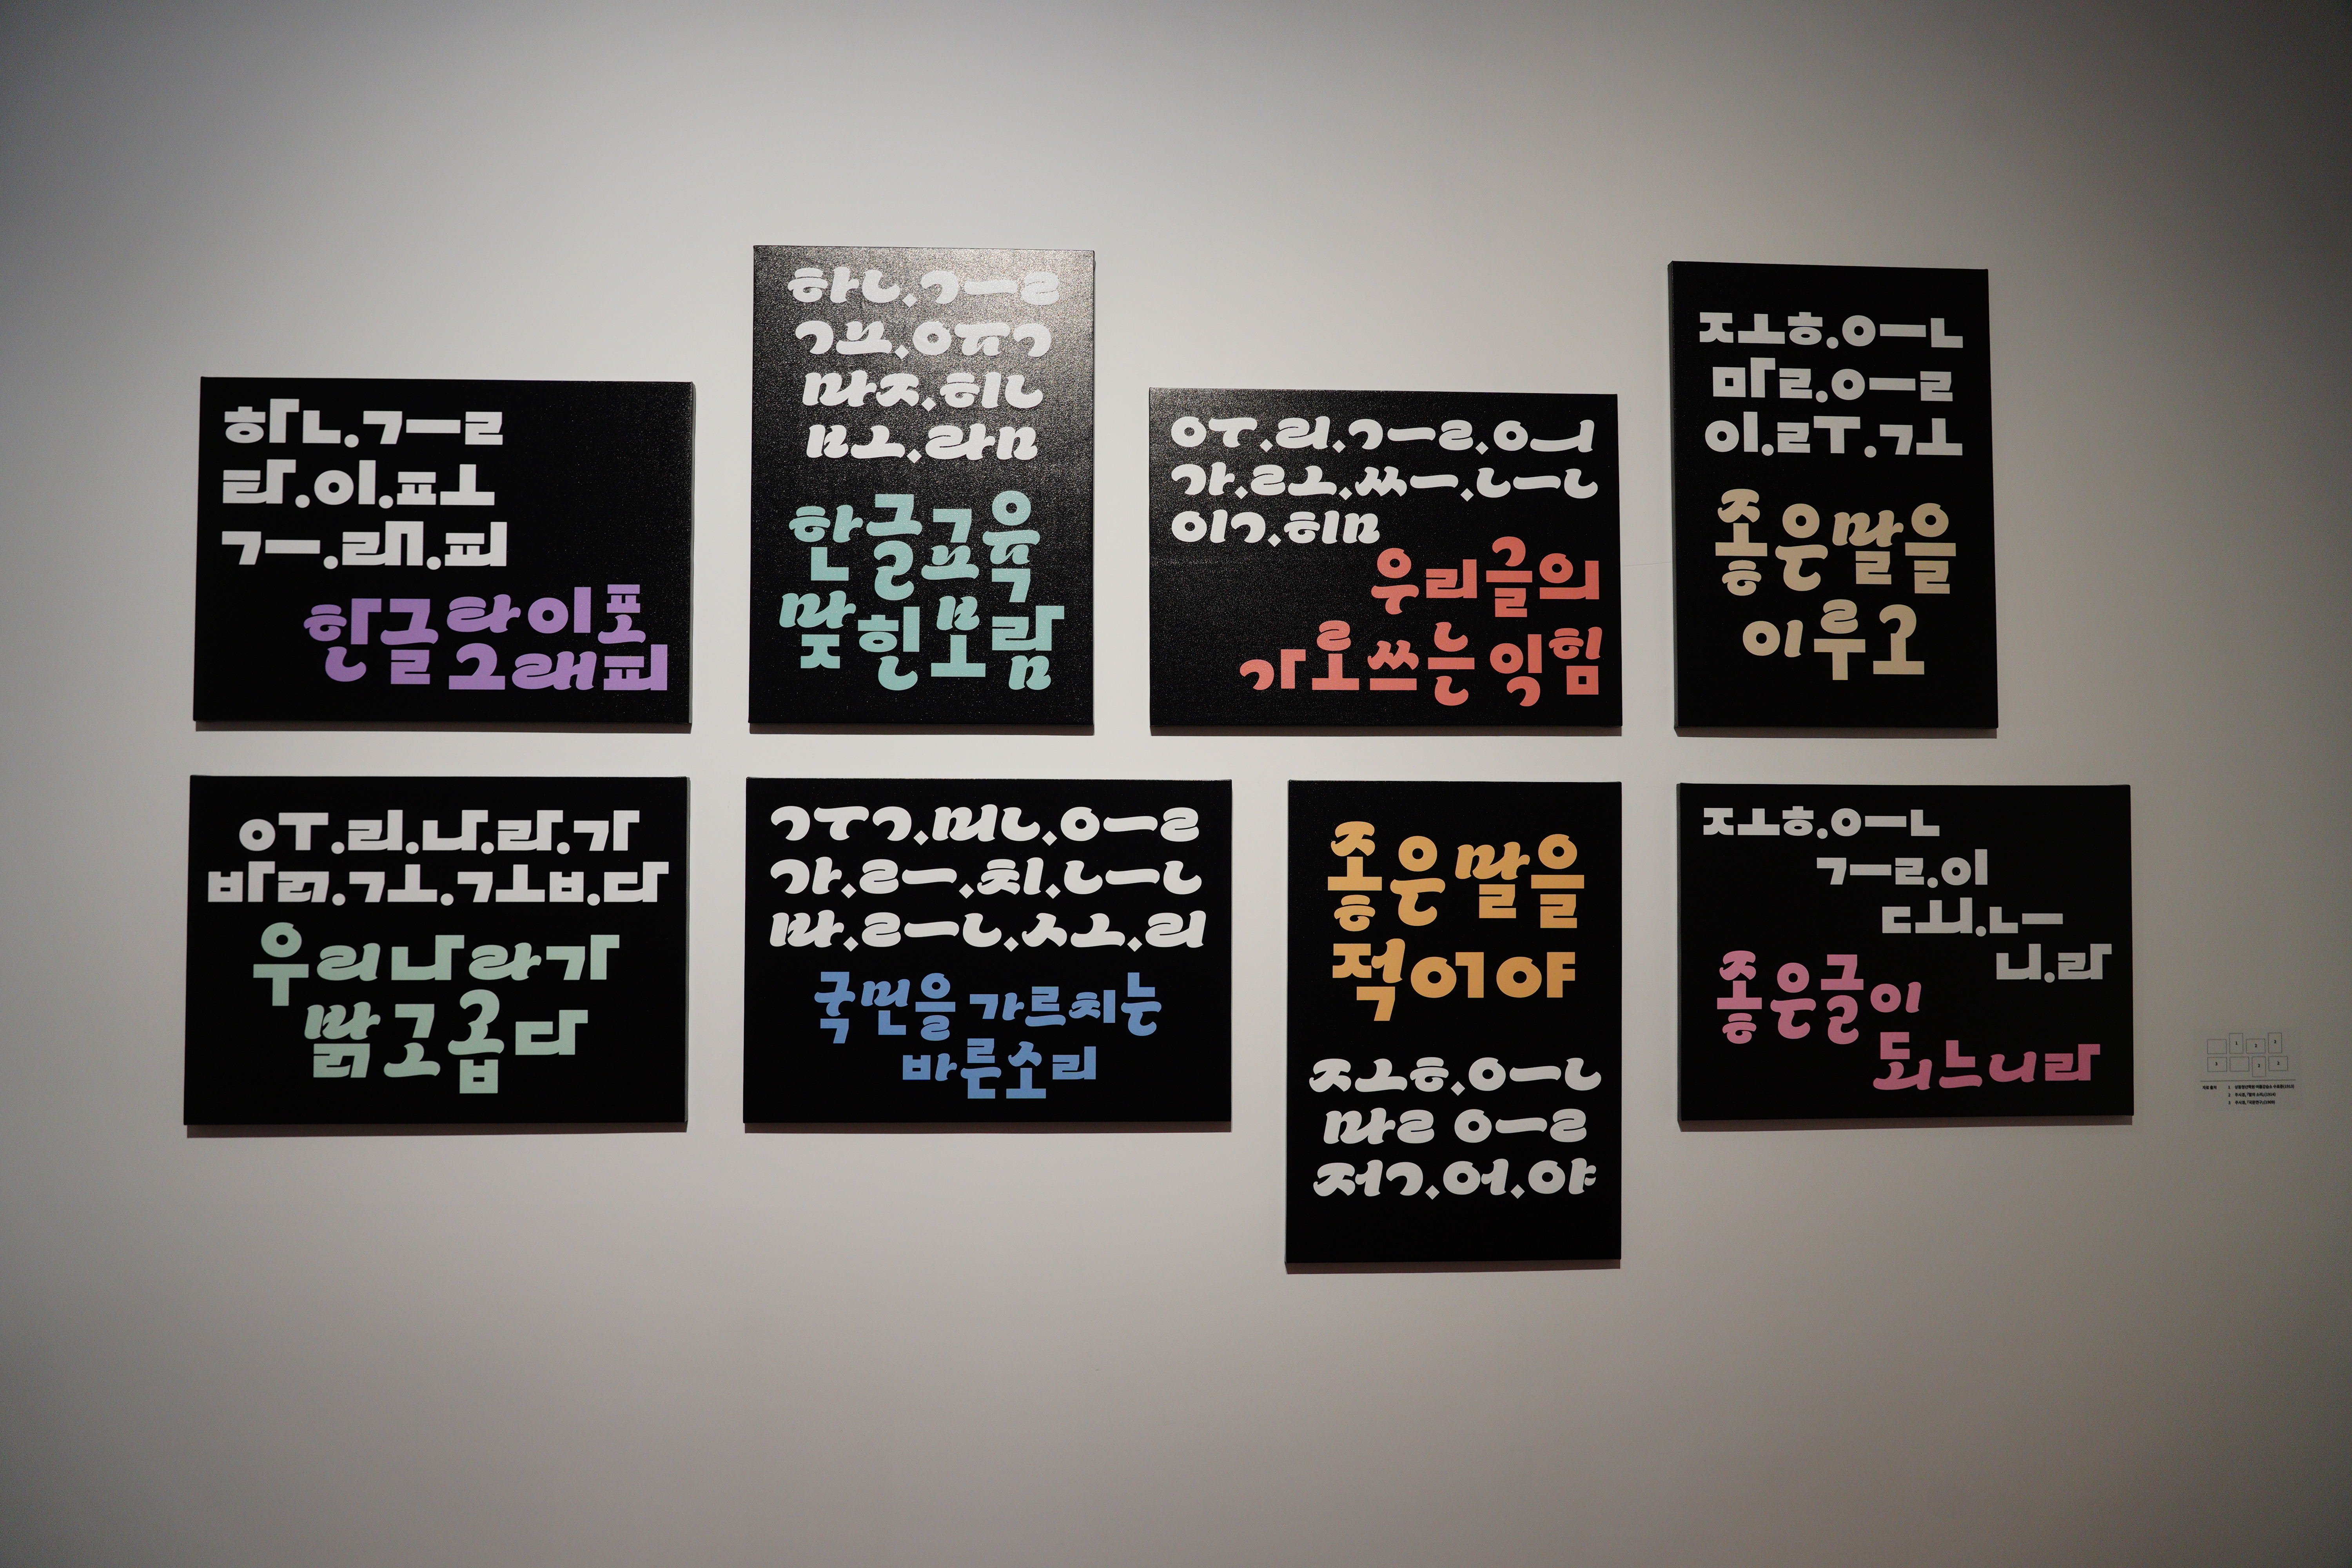 ㅎㅏㄴ.ㄱㅡㄹ
ㅌㅏ.ㅇㅣ.ㅍㅗ
ㄱㅡ.ㄹㅐ.ㅍㅣ
한글 타이포
그래피
ㅎㅏㄴ.ㄱㅡㄹ
ㄱㅛ.ㅇㅠㄱ
ㅁㅏㅈ.ㅎㅣㄴ
ㅂㅗ.ㄹㅏㅁ
한글교육
맞힌보람
ㅇㅜ.ㄹㅣ.ㄱㅡㄹ.ㅇㅢ
ㄱㅏ.ㄹㅗ.ㅆㅡ.ㄴㅡㄴ
ㅇㅣㄱ.ㅎㅣㅁ
우리글의
가로쓰는 익힘
ㅈㅗㅎ.ㅇㅡㄴ
ㅁㅏㄹ.ㅇㅡㄹ
ㅇㅣ.ㄹㅜ.ㄱㅗ
좋은말을
이루고
ㅇㅜ.ㄹㅣ.ㄴㅏ.ㄹㅏ.ㄱㅏ
ㅂㅏㄺ.ㄱㅗ.ㄱㅗㅂ.ㄷㅏ
우리나라가
밝고곱다
ㄱㅜㄱ.ㅁㅣㄴ.ㅇㅡㄹ
ㄱㅏ.ㄹㅡ.ㅊㅣ.ㄴㅡㄴ
ㅂㅏ.ㄹㅡㄴ.ㅅㅗ.ㄹㅣ
국민을 가르치는
바른소리
좋은말을
적어야
ㅈㅗㅎ.ㅇㅡㄴ
ㅁㅏㄹ ㅇㅡㄹ
ㅈㅓㄱ.ㅇㅓ.ㅇㅑ
ㅈㅗㅎ.ㅇㅡㄴ
ㄱㅡㄹ.ㅇㅣ
ㄷㅚ.ㄴㅡ
ㄴㅣ.ㄹㅏ
좋은글이
되느니라